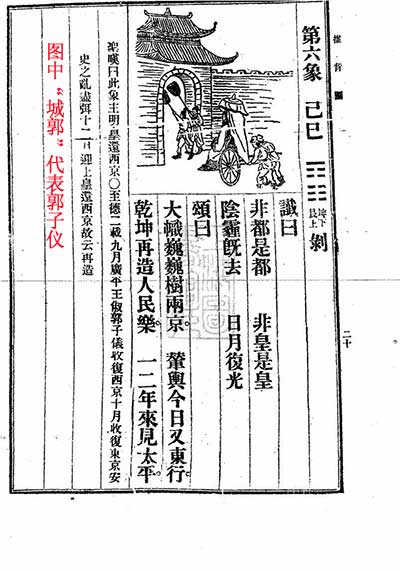 推背圖
第六象 己巳 ䷖ 坤下艮上 剝
讖曰
非都是都 非皇是皇
陰霾旣去 日月復光
頌曰
大幟巍巍樹兩京 輦輿今日又東行
乾坤再造人民樂 一二年來見太平
聖嘆曰此象主明皇還西京〇至德二載九月廣平王俶郭子儀收復西京十月收復東京安
史之亂盡弭十二月迎上皇還西京故云再造
图中“城郭”代表郭子仪
二十